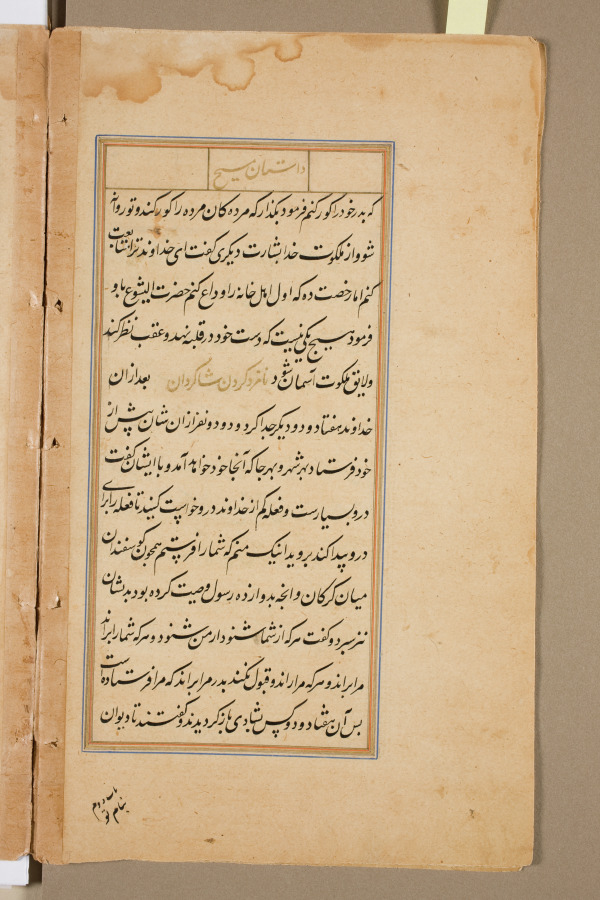 داستان مسیح
که پدر خود را گور کنم فرمود بگذار که مرده کان مرده را گور کنند و تو روانه
شو و از ملکوت خدا بشارت ده دیگری گفت ای خداوند ترا متابعت
کنم اما رخصت ده که اول اهل خانه را وداع کنم حضرت الیشوع باو
فرمود هیچ یکی نیست که دست خود در قلبه نهد و عقب نظر کند
و لایق ملکوت آسمان شود نامزد کردن شاگردان بعد ازان
خداوند هفتاد و دو دیگر جدا کرد و دو دو نفر ازان شان پیش از
خود فرستاد بهر شهر و بهر جا که آنجا خود خواهد آمد و با ایشان گفت
درو بسیارست و فعله کم از خداوند درو خواست کنید تا فعله را برای
درو پیدا کند بروید اینک منم که شما را فرستم همچون گوسفندان
میان گرگان و انچه بدوازده رسول وصیت کرده بود بدیشان
نیز سپرد و گفت هر که از شما شنود از من شنود و هر که شما را براند
مرا براند و هر که مرا راند و قبول نکند پدر مرا براند که مرا فرستاده است
پس آن هفتاد و دو کس بشادی باز گردیدند و گفتند تا دیوان
بنام تو